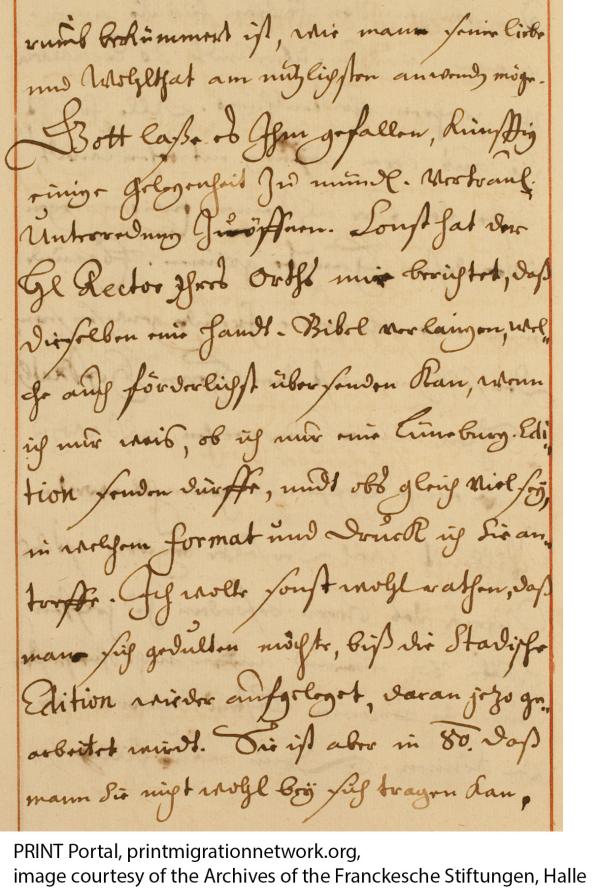 rumb bekümmert ist, wie mann seine liebe
und Wohlthat am nützlichsten anwenden möge.
Gott laße es Ihm gefallen, künfftig
einige gelegenheit zu mündl. vertraul.
Unterredung zu öffnen. Sonst hat der
H. Rector Ihres Orths mir berichtet, daß
dieselben eine Handt-Bibel verlangen, wel-
che auch förderlichst übersenden kan, wenn
ich nur weis, ob ich nur eine Lüneburg. Edi-
tion senden dürffe, undt obs gleich viel sey,
in welchem format und Druck ich sie an-
treffe. Ich wolte sonst wohl rathen, daß
man sich gedulten möchte, biß die Stadische
Edition wieder aufgeleget, daran jezo ge-
arbeitet wirdt. Sie ist aber in 8o. daß
mann sie nicht wohl bey sich tragen kan,
PRINT Portal, printmigrationnetwork.org,
image courtesy of the Archives of the Franckesche Stiftungen, Halle